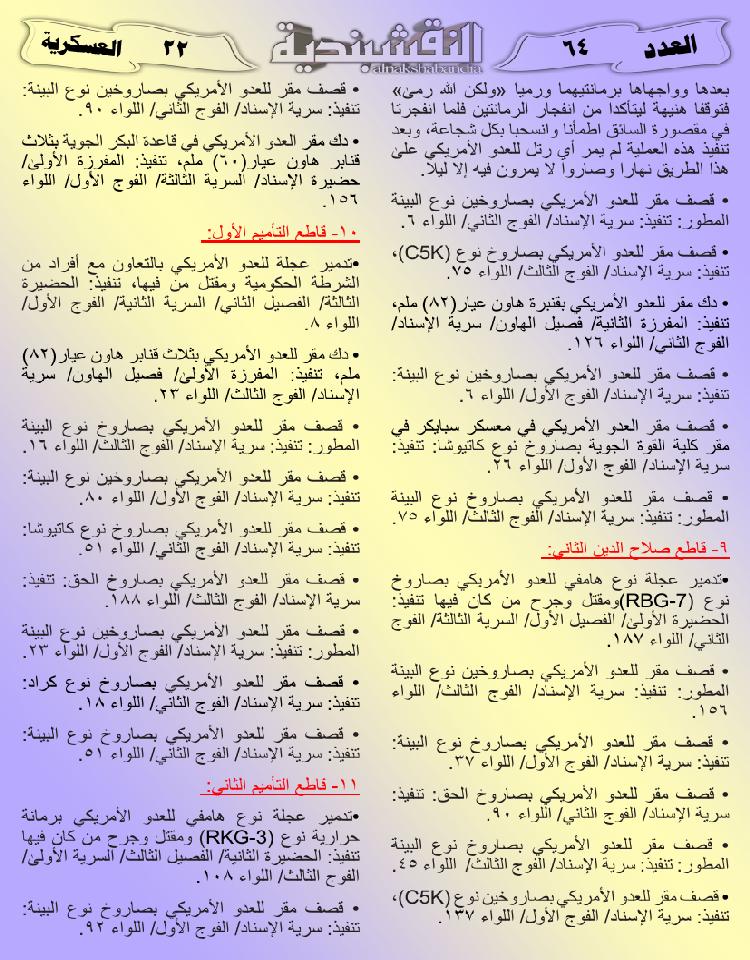 العدد
٦٤
النقشبندية
alnakshabandia
٢٢
العسكرية
بعدها وواجهاها برمانتيهما ورميا «ولكن الله رمىٰ»
فتوقفا هنيهة ليتأكدا من انفجار الرمانتين فلما انفجرتا
في مقصورة السائق اطمأنا وانسحبا بكل شجاعة، وبعد
تنفيذ هذه العملية لم يمر أي رتل للعدو الأمريكي علىٰ
هذا الطريق نهارا وصاروا لا يمرون فيه إلا ليلاً.
• قصف مقر للعدو الأمريكي بصاروخين نوع البينة
المطور: تنفيذ: سرية الإسناد/ الفوج الثاني/ اللواء ٦.
• قصف مقر للعدو الأمريكي بصاروخ نوع (C5K)،
تنفيذ: سرية الإسناد/ الفوج الثالث/ اللواء ٧٥.
• دك مقر للعدو الأمريكي بقنبرة هاون عيار(٨٢) ملم،
تنفيذ: المفرزة الثانية/ فصيل الهاون/ سرية الإسناد/
الفوج الثاني/ اللواء ١٢٦.
• قصف مقر للعدو الأمريكي بصاروخين نوع البينة:
تنفيذ: سرية الإسناد/ الفوج الأول/ اللواء ٦.
• قصف مقر العدو الأمريكي في معسكر سبايكر في
مقر كلية القوة الجوية بصاروخ نوع كاتيوشا: تنفيذ:
سرية الإسناد/ الفوج الأول/ اللواء ٢٦.
• قصف مقر للعدو الأمريكي بصاروخ نوع البينة
المطور: تنفيذ: سرية الإسناد/ الفوج الثالث/ اللواء ٧٥.
٩- قاطع صلاح الدين الثاني:
•تدمير عجلة نوع هامفي للعدو الأمريكي بصاروخ
نوع (RBG-7)ومقتل وجرح من كان فيها تنفيذ:
الحضيرة الأولىٰ/ الفصيل الأول/ السرية الثالثة/ الفوج
الثاني/ اللواء ١٨٧.
• قصف مقر للعدو الأمريكي بصاروخين نوع البينة
المطور: تنفيذ: سرية الإسناد/ الفوج الثالث/ اللواء
١٥٦.
• قصف مقر للعدو الأمريكي بصاروخ نوع البينة:
تنفيذ: سرية الإسناد/ الفوج الأول/ اللواء ٣٧.
• قصف مقر للعدو الأمريكي بصاروخ الحق: تنفيذ:
سرية الإسناد/ الفوج الثاني/ اللواء ٩٠.
• قصف مقر للعدو الأمريكي بصاروخ نوع البينة
المطور: تنفيذ: سرية الإسناد/ الفوج الثالث/ اللواء ٤٥.
• قصف مقر للعدو الأمريكي بصاروخين نوع (C5K)،
تنفيذ: سرية الإسناد/ الفوج الأول/ اللواء ١٣٧.
• قصف مقر للعدو الأمريكي بصاروخين نوع البينة:
تنفيذ: سرية الإسناد/ الفوج الثاني/ اللواء ٩٠.
• دك مقر العدو الأمريكي في قاعدة البكر الجوية بثلاث
قنابر هاون عيار(٦٠) ملم، تنفيذ: المفرزة الأولىٰ/
حضيرة الإسناد/ السرية الثالثة/ الفوج الأول/ اللواء
١٥٦.
١٠- قاطع التأميم الأول:
•تدمير عجلة للعدو الأمريكي بالتعاون مع أفراد من
الشرطة الحكومية ومقتل من فيها، تنفيذ: الحضيرة
الثالثة/ الفصيل الثاني/ السرية الثانية/ الفوج الأول/
اللواء ٨.
• دك مقر للعدو الأمريكي بثلاث قنابر هاون عيار(٨٢)
ملم، تنفيذ: المفرزة الأولىٰ/ فصيل الهاون/ سرية
الإسناد/ الفوج الثالث/ اللواء ٢٣.
• قصف مقر للعدو الأمريكي بصاروخ نوع البينة
المطور: تنفيذ: سرية الإسناد/ الفوج الثالث/ اللواء ١٦.
• قصف مقر للعدو الأمريكي بصاروخين نوع البينة:
تنفيذ: سرية الإسناد/ الفوج الأول/ اللواء ٨٠.
• قصف مقر للعدو الأمريكي بصاروخ نوع كاتيوشا:
تنفيذ: سرية الإسناد/ الفوج الثاني/ اللواء ٥١.
• قصف مقر للعدو الأمريكي بصاروخ الحق: تنفيذ:
سرية الإسناد/ الفوج الثالث/ اللواء ١٨٨.
• قصف مقر للعدو الأمريكي بصاروخين نوع البينة
المطور: تنفيذ: سرية الإسناد/ الفوج الأول/ اللواء ٢٣.
• قصف مقر للعدو الأمريكي بصاروخ نوع كراد:
تنفيذ: سرية الإسناد/ الفوج الثاني/ اللواء ١٨.
• قصف مقر للعدو الأمريكي بصاروخ نوع البينة:
تنفيذ: سرية الإسناد/ الفوج الثاني/ اللواء ٥١.
١١- قاطع التأميم الثاني:
•تدمير عجلة نوع هامفي للعدو الأمريكي برمانة
حرارية نوع (RKG-3) ومقتل وجرح من كان فيها
تنفيذ: الحضيرة الثانية/ الفصيل الثالث/ السرية الأولىٰ/
الفوج الثالث/ اللواء ١٠٨.
• قصف مقر للعدو الأمريكي بصاروخ نوع البينة:
تنفيذ: سرية الإسناد/ الفوج الأول/ اللواء ٩٢.